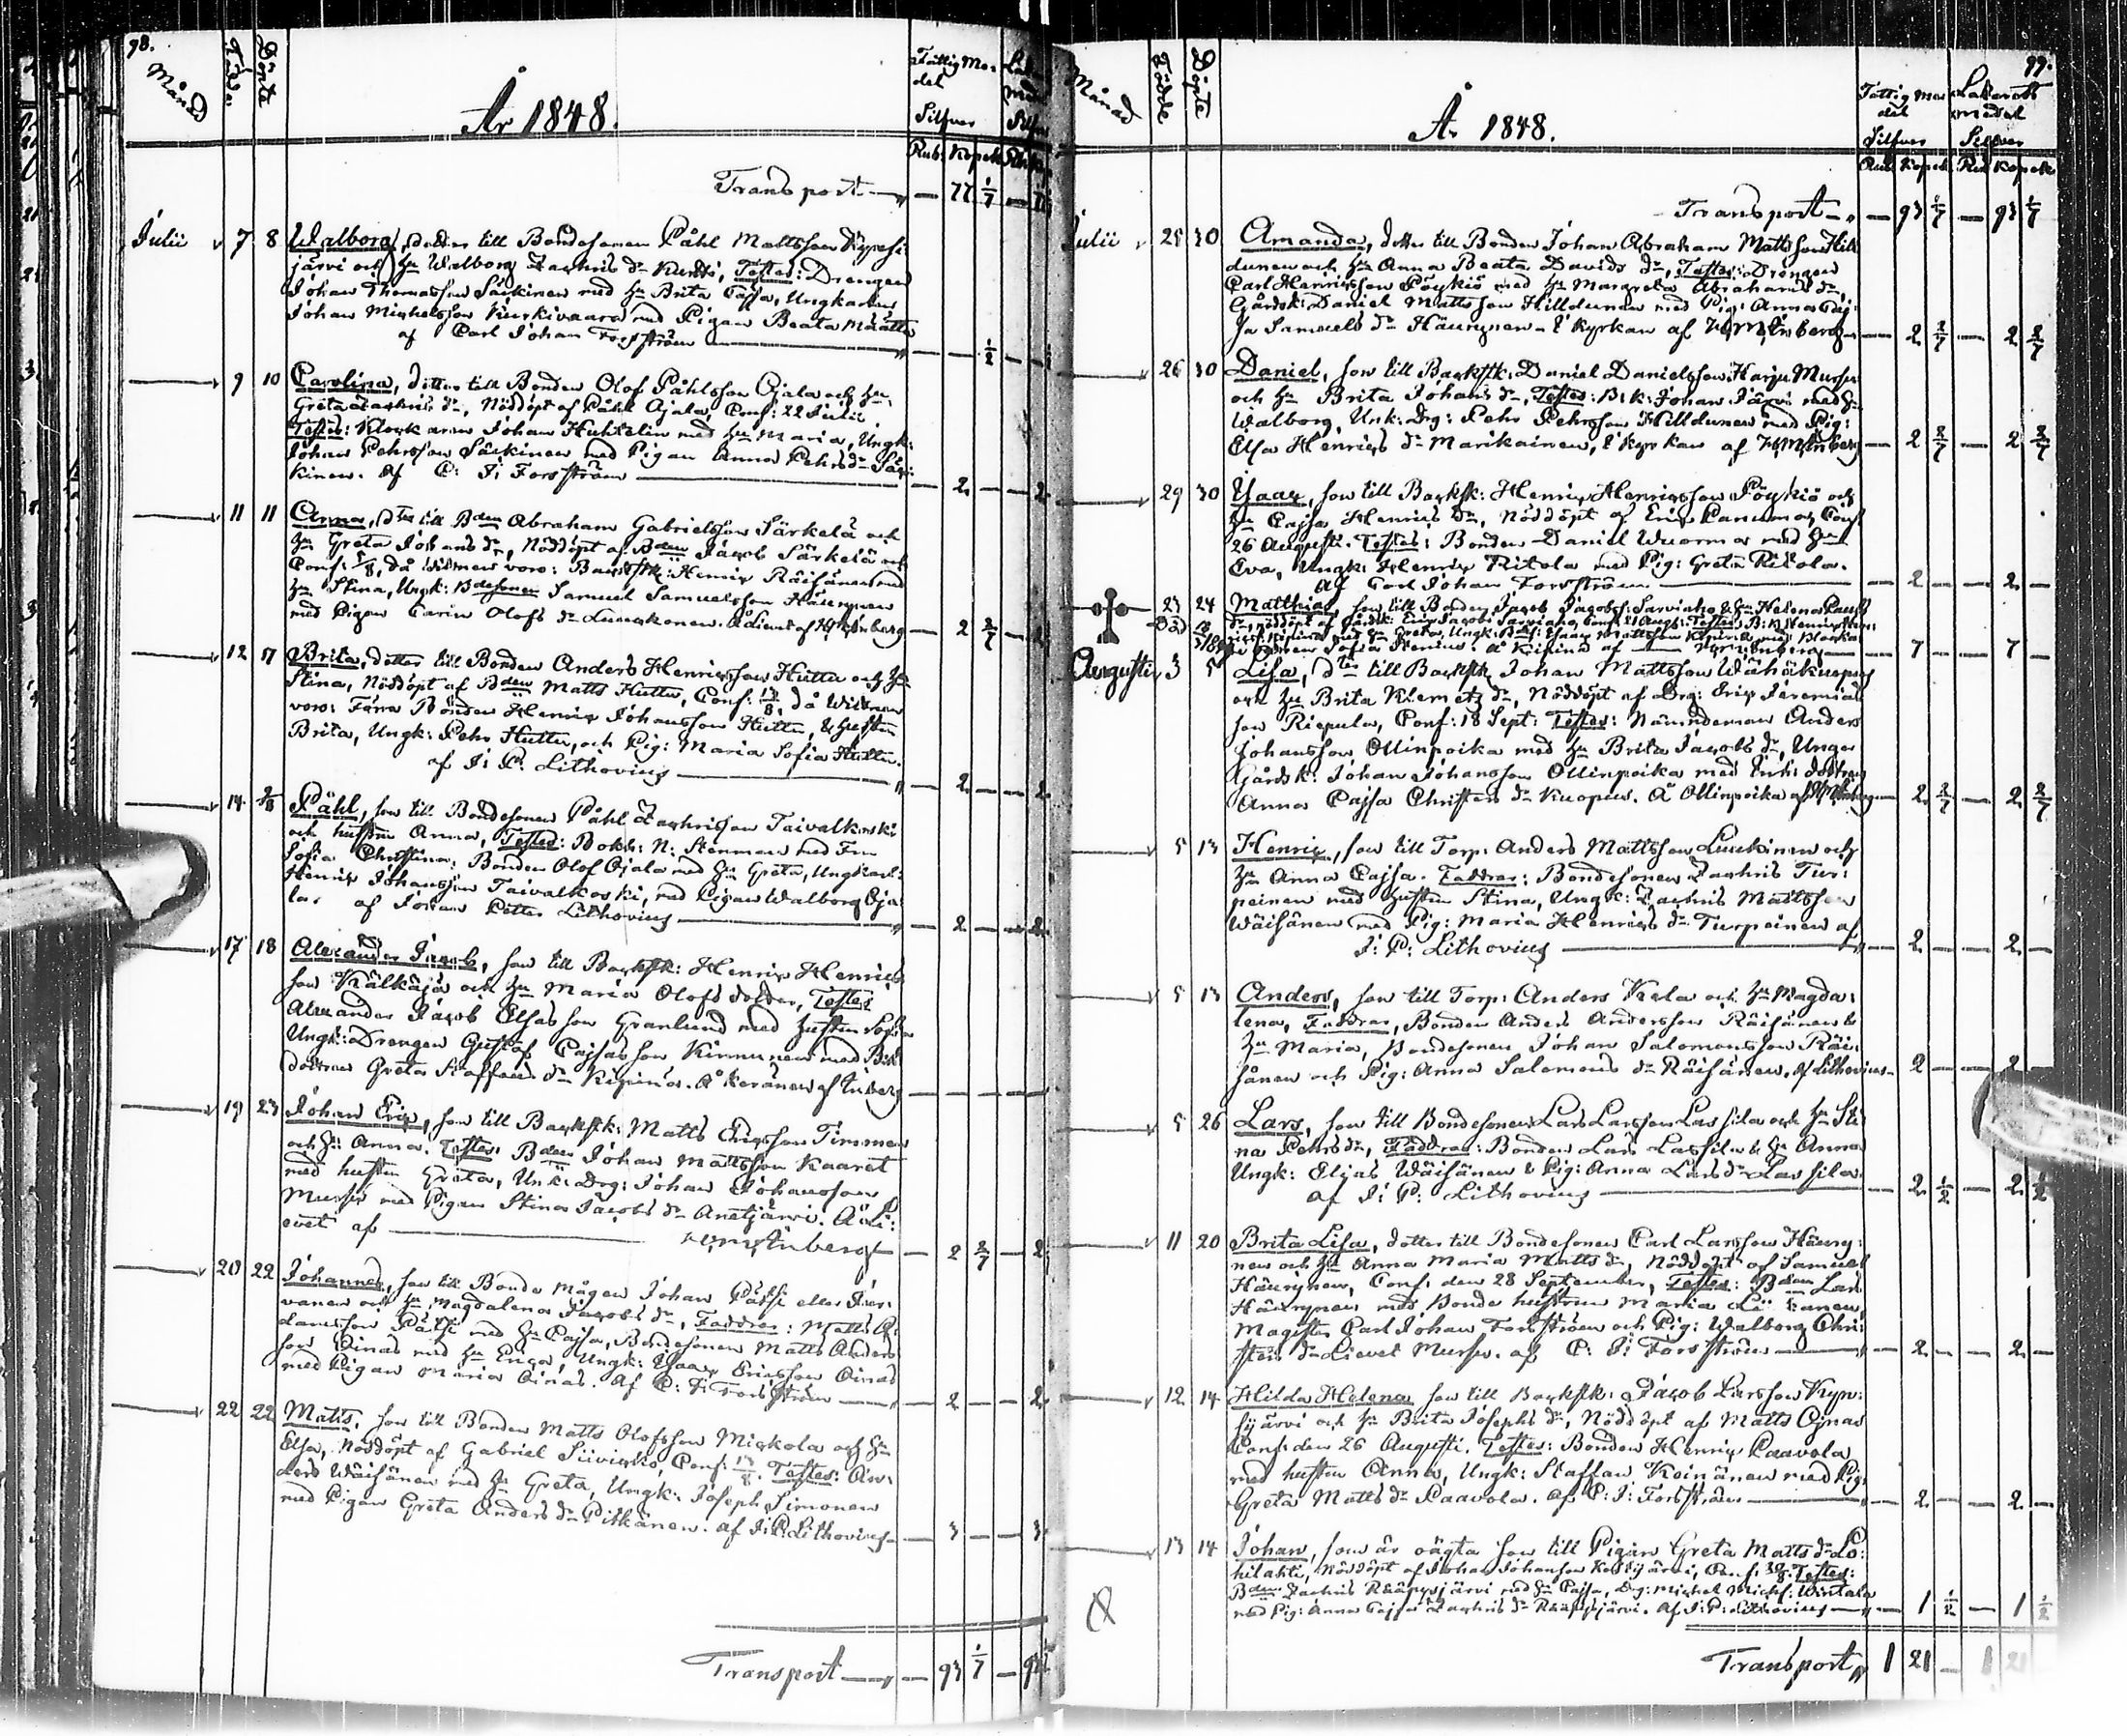 98.
Månad
Födde
Döpte
År 1848.
Fattig Me-
del
Silfver
Rub: Kopek
Transport — 77 1/7
Julii 7 8 Walborg, dotter till Bondesonen Påhl Mattsson
järvi och Hu Walborg Zachris dr Kurtti, Testes: Drengen
Johan Thomasson Säckinen med Hu Brita Cajsa, Ungkarlen
Johan Michelsson Kurkivaara med Pigan Beata Määttä
af Carl Johan Forsström — 1/2
9 10 Carolina, dotter till Bonden Olof Påhlsson Ojala och Hu
Greta Zachris dr, Nöddöpt af Påhl Ojala, Conf: 22 Julii
Testes: Klockaren Johan Huhtelin med Hu Maria, Ungk:
Johan Pehrsson Säckinen med Pigan Anna Pehrs dr Säc-
kinen. af C: J: Forsström — 2 — 2
11 11 Anna, dter till Bden Abraham Gabrielsson Särkelä och
Hu Greta Johans dr, Nöddöpt af Bden Jacob Särkelä och
Conf: 5/8, då Wittnen voro: Backstk: Henric Räisänen med
Hu Stina, Ungk: Bdesonen Samuel Samuelsson Häurynen
med Pigan Carin Olofs dr Luuckonen. — 2 2/7
12 17 Brita, dotter till Bonden Anders Henricsson Huttu och Hu
Stina, Nöddöpt af Bden Matts Huttu, Conf: 13/8, då Wittnen
voro: Farra Bonden Henric Johansson Huttu, & Hustru
Brita, Ungk: Pehr Huttu, och Pig: Maria Sofia Huttu.
af J: P: Lithovius — 2 — 2
14 Påhl, son till Bondesonen Påhl Zachrisson Taivalkoski
och hustru Anna, Testes: Bokh: N: Stenman med Fru
Sofia Christina, Bonden Olof Ojala med Hu Greta, Ungkarl:
Henric Johansson Taivalkoski, med Pigan Walborg Oja
la. af Johan Petter Lithovius — 2 — 2
17 18 Alexander Jacob, son till Backstk: Henric Henrics
son Kälkäjä och Hu Maria Olofs dotter, Testes:
Alexander Jacob Elfasson Granlund med hustru Sofia
Ungk: Drengen Gustaf Cajsasson Kinnunen med Bde
dottren Greta Staffans dr
19 23 Johan Eric, son till Backstk: Matts Ericsson Timmen
och Hu Anna. Testes: Bden Johan Mattsson Kaaret
med hustru Greta, Unk: Drg: Johan Johansson
Mursu med Pigan Stina Jacobs dr Anetjärvi. Å Li-
evet af — 2 2/7 — 2
20 22 Johannes, son till Bonde mågen Johan Pätsi eller
vanen och Hu Magdalena Jacobs dr, Faddrar: Matts A-
damsson Pätsi med Hu Cajsa, Bondesonen Matts Anders
son Oinas med Hu Enga, Ungk: Isaac Ericsson Oinas
med Pigan Maria Oinas. Af C: J: Forsström — 2 — 2
22 22 Matts, son till Bonden Matts Olofsson Mickola och Hu
Elsa, Nöddöpt af Gabriel Siivicko, Conf: 13/8. Testes: An-
ders Wäisänen med Hu Greta, Ungk: Joseph Simonen
med Pigan Greta Anders dr Pitkänen. af J: P: Lithovius — 3 — 3
Transport — 93 1/7
99.
Månad
Födde
Döpte
År 1848.
Fattig Me-
del
Silfver
Lasaretts
medel
Silfver
Rub: Kopek
Transport — 93 1/7 — 93 1/7
Julii 25 30 Amanda, dotter till Bonden Johan Abraham Mattsson Hill
dunen och Hu Anna Beata Davids dr, Testes: Drengen
Carl Henricsson Pöykiö med Hu Margreta Abrahams dr,
Gårdsk: Daniel Mattsson Hilldunen med Pig: Anna Caj-
sa Samuels dr Häurynen. I kyrkan af — 2 2/7 — 2 2/7
26 30 Daniel, son till Backstk: Daniel Danielsson Harju Mursu
och Hu Brita Johans dr, Testes: B: k: Johan Järvi med Hu
Walborg, Unk: Drg: Pehr Pehrsson Hilldunen med Pig:
Elsa Henrics dr Marikainen, I kyrkan af — 2 2/7 — 2 2/7
29 30 Isaac, son till Backstk: Henric Henricsson Pöykiö och
Hu Cajsa Henrics dr, Nöddöpt af Eric Panuma, Conf
26 Augusti. Testes: Bonden Daniel Wuorma med Hu
Eva, Ungk: Henric Ritola med Pig: Greta Ritola.
af Carl Johan Forsström — 2 — 2 —
23 24 Matthias, son till Bonden Jacob Jacobs: Sarviaho & Hu Helena
— 7 — 7 —
Augusti 3 5 Lisa, dter till Backstk: Johan Mattsson
och Hu Brita Klemets dr, Nöddöpt af Drg: Eric Jeremias
son Riepula, Conf: 18 Sept: Testes: Nämndeman Anders
Johansson Ollinpoika med Hu Brita Jacobs dr, Unga
Gårdsk: Johan Johansson Ollinpoika med Enk: dottren
Anna Cajsa Christers dr Kuopus. Å Ollinpoika af — 2 2/7 — 2 2/7
5 13 Henric, son till Torp: Anders Mattsson Luukinen och
Hu Anna Cajsa. Faddrar: Bondesonen Zachris Tur-
peinen med hustru Stina, Ungk: Zachris Mattsson
Wäisänen med Pig: Maria Henrics dr Turpeinen af
J: P: Lithovius — 2 — 2 —
5 13 Anders, son till Torp: Anders Kela och Hu Magda-
lena, Faddrar, Bonden Anders Andersson Räisänen &
Hu Maria, Bondesonen Johan Salomonsson Räi-
sänen och Pig: Anna Salomons dr Räisänen. af Lithovius — 2 — 2
5 26 Lars, son till Bondesonen Lars Larsson Lassila och Hu Sti-
na Pehrs dr, Faddrar: Bonden Lars Lassila & Hu Anna
Ungk: Elias Wäisänen & Pig: Anna Lars dr Lassila
af J: P: Lithovius — 2 1/2 — 2 1/2
11 20 Brita Lisa, dotter till Bondesonen Carl Larsson Häury-
nen och Hu Anna Maria Matts dr, Nöddöpt af Samuel
Häurynen, Conf: den 28 September, Testes: Bden Lars
Häurynen, med Bonde hustrun Maria Liikanen,
Magister Carl Johan Forsström och Pig: Walborg Chri-
sters dr Lievet Mursu. af C: J: Forsström — 2 — 2 —
12 14 Hilda Helena son till Backstk: Jacob Larsson Kyn-
sijärvi och Hu Brita Josephs dr, Nöddöpt af Matts Ojnas
Conf: den 26 Augusti. Testes: Bonden Henric Paavola
med hustru Anna, Ungk: Staffan Keinänen med Pig:
Greta Matts dr Paavola. af C: J: Forsström — 2 — 2 —
13 14 Johan, som är oägta son till Pigan Greta Matts dr Lo-
hilahti, Nöddöpt af Johan Johansson Testes:
Bden Zachris Rääpysjärvi med Hu Cajsa, Drg: Michel Michls:
med Pig: Anna Cajsa Zachris dr Rääpysjärvi. af J: P: Lithovius — 1 1/2 — 1 1/2
Transport 1 21 — 1 21